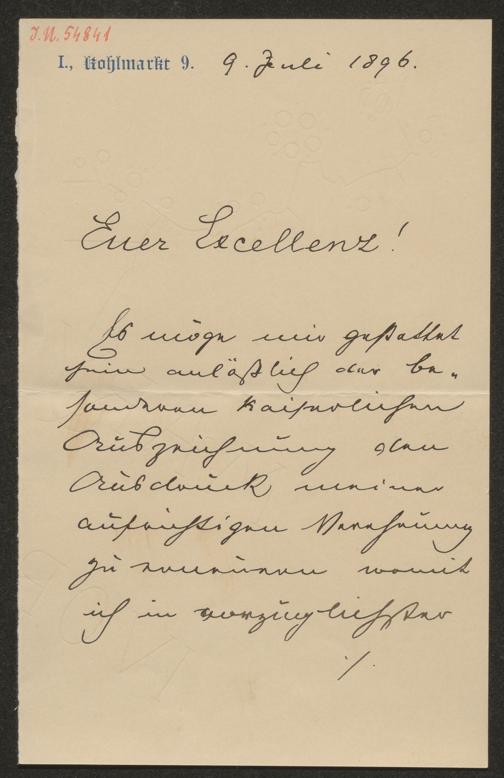 I.N. 54841
I., Kohlmarkt 9. 9. Juli 1896.
Euer Excellenz!
Es möge mir gestattet
sein anläßlich der be-
sonderen kaiserlichen
Auszeichnung den
Ausdruck meiner
aufrichtigen Verehrung
zu erneuern womit
ich in vorzüglichster
./.